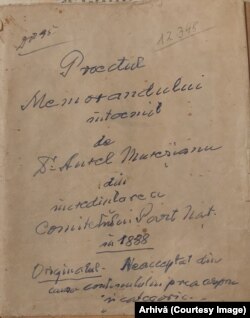 12345
Proectul
Memorandului
întocmit
de
Dr Aurel Mureşianu
din
încredinţarea
Comitetului Part. Naţ.
în 1888
Originalul. Neacceptat din
cauza conţinutului prea aspru
şi categoric.
Arhivă (Courtesy Image)